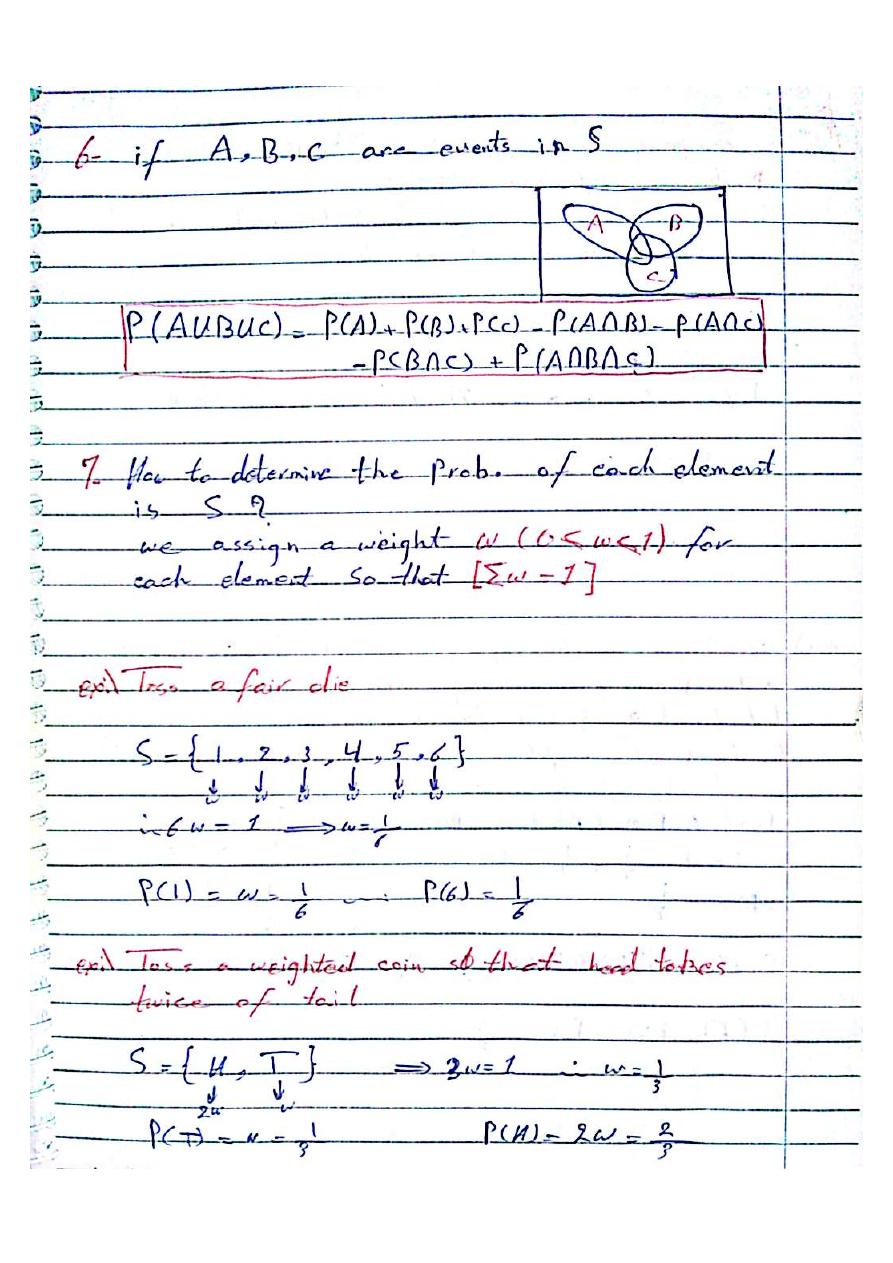 6- if A, B, C are events in S
A B
C
P(A∪B∪C) = P(A) + P(B) + P(C) - P(A∩B) - P(A∩C)
- P(B∩C) + P(A∩B∩C)
7- How to determine the Prob. of each element
is S ?
we assign a weight w (0 < w < 1) for
each element so that [Σw = 1]
ex:\ Toss a fair die
S = { 1, 2, 3, 4, 5, 6 }
↓ ↓ ↓ ↓ ↓ ↓
w w w w w w
∴ 6w = 1 ⟹ w = 1/6
P(1) = w = 1/6 ... P(6) = 1/6
ex:\ Toss a weighted coin so that head takes
twice of tail
S = { H, T } ⟹ 3w = 1 ∴ w = 1/3
↓ ↓
2w w
P(T) = w = 1/3 P(H) = 2w = 2/3